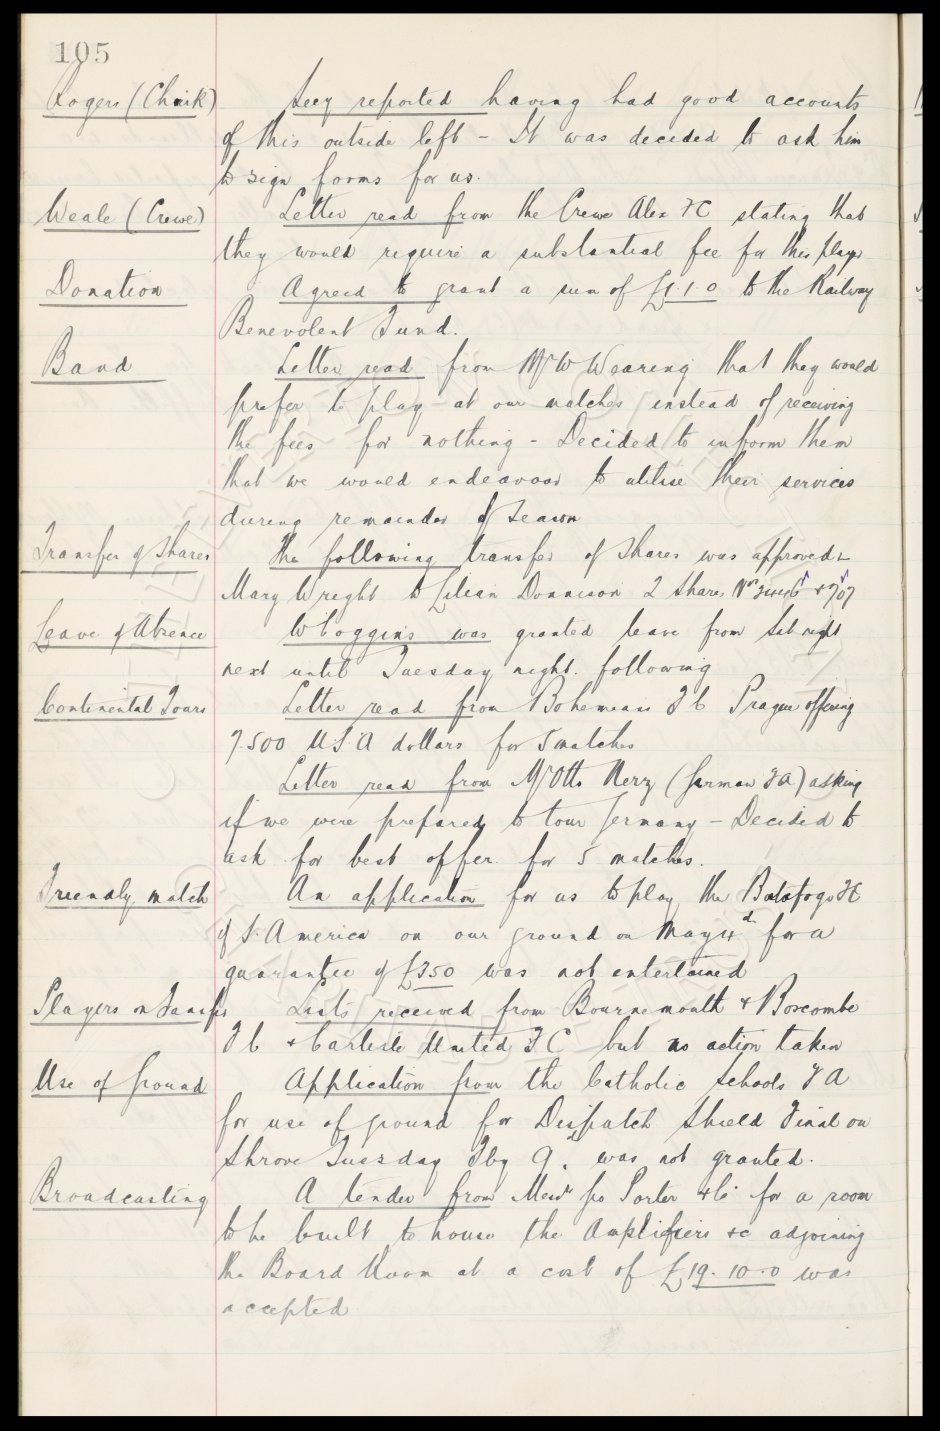 105
Rogers (Chirk) Secy reported having had good accounts
of this outside left - It was decided to ask him
to sign forms for us.
Weale (Crewe) Letter read from the Crewe Alex FC stating that
they would require a substantial fee for this player
Donation Agreed to grant a sum of £1.1.0 to the Railway
Benevolent Fund.
Band Letter read from Mr W Wearing that they would
prefer to play at our matches instead of receiving
the fees for nothing - Decided to inform them
that we would endeavour to utilise their services
during remainder of Season
Transfer of Shares The following transfer of shares was approved -
Mary Wright to Lilian Donnison 2 Shares Nos &
Leave of Absence W Coggins was granted leave from Sat night
next until Tuesday night following
Continental Tours Letter read from Bohemians F C Prague offering
7.500 U.S.A dollars for 5 matches
Letter read from Mr Otto Nerz (German FA) asking
if we were prepared to tour Germany - Decided to
ask for best offer for 5 matches.
Friendly match An application for us to play the Botafogo FC
of S. America on our ground on May 4th for a
guarantee of £350 was not entertained
Players on Transfer Lists received from Bournemouth & Boscombe
F C & Carlisle United F C but no action taken
Use of Ground Application from the Catholic Schools F A
for use of ground for Despatch Shield Final on
Shrove Tuesday Feby 9. was not granted.
Broadcasting A tender from Messrs Porter & Co for a room
to be built to house the Amplifiers &c adjoining
the Board Room at a cost of £19.10.0 was
accepted